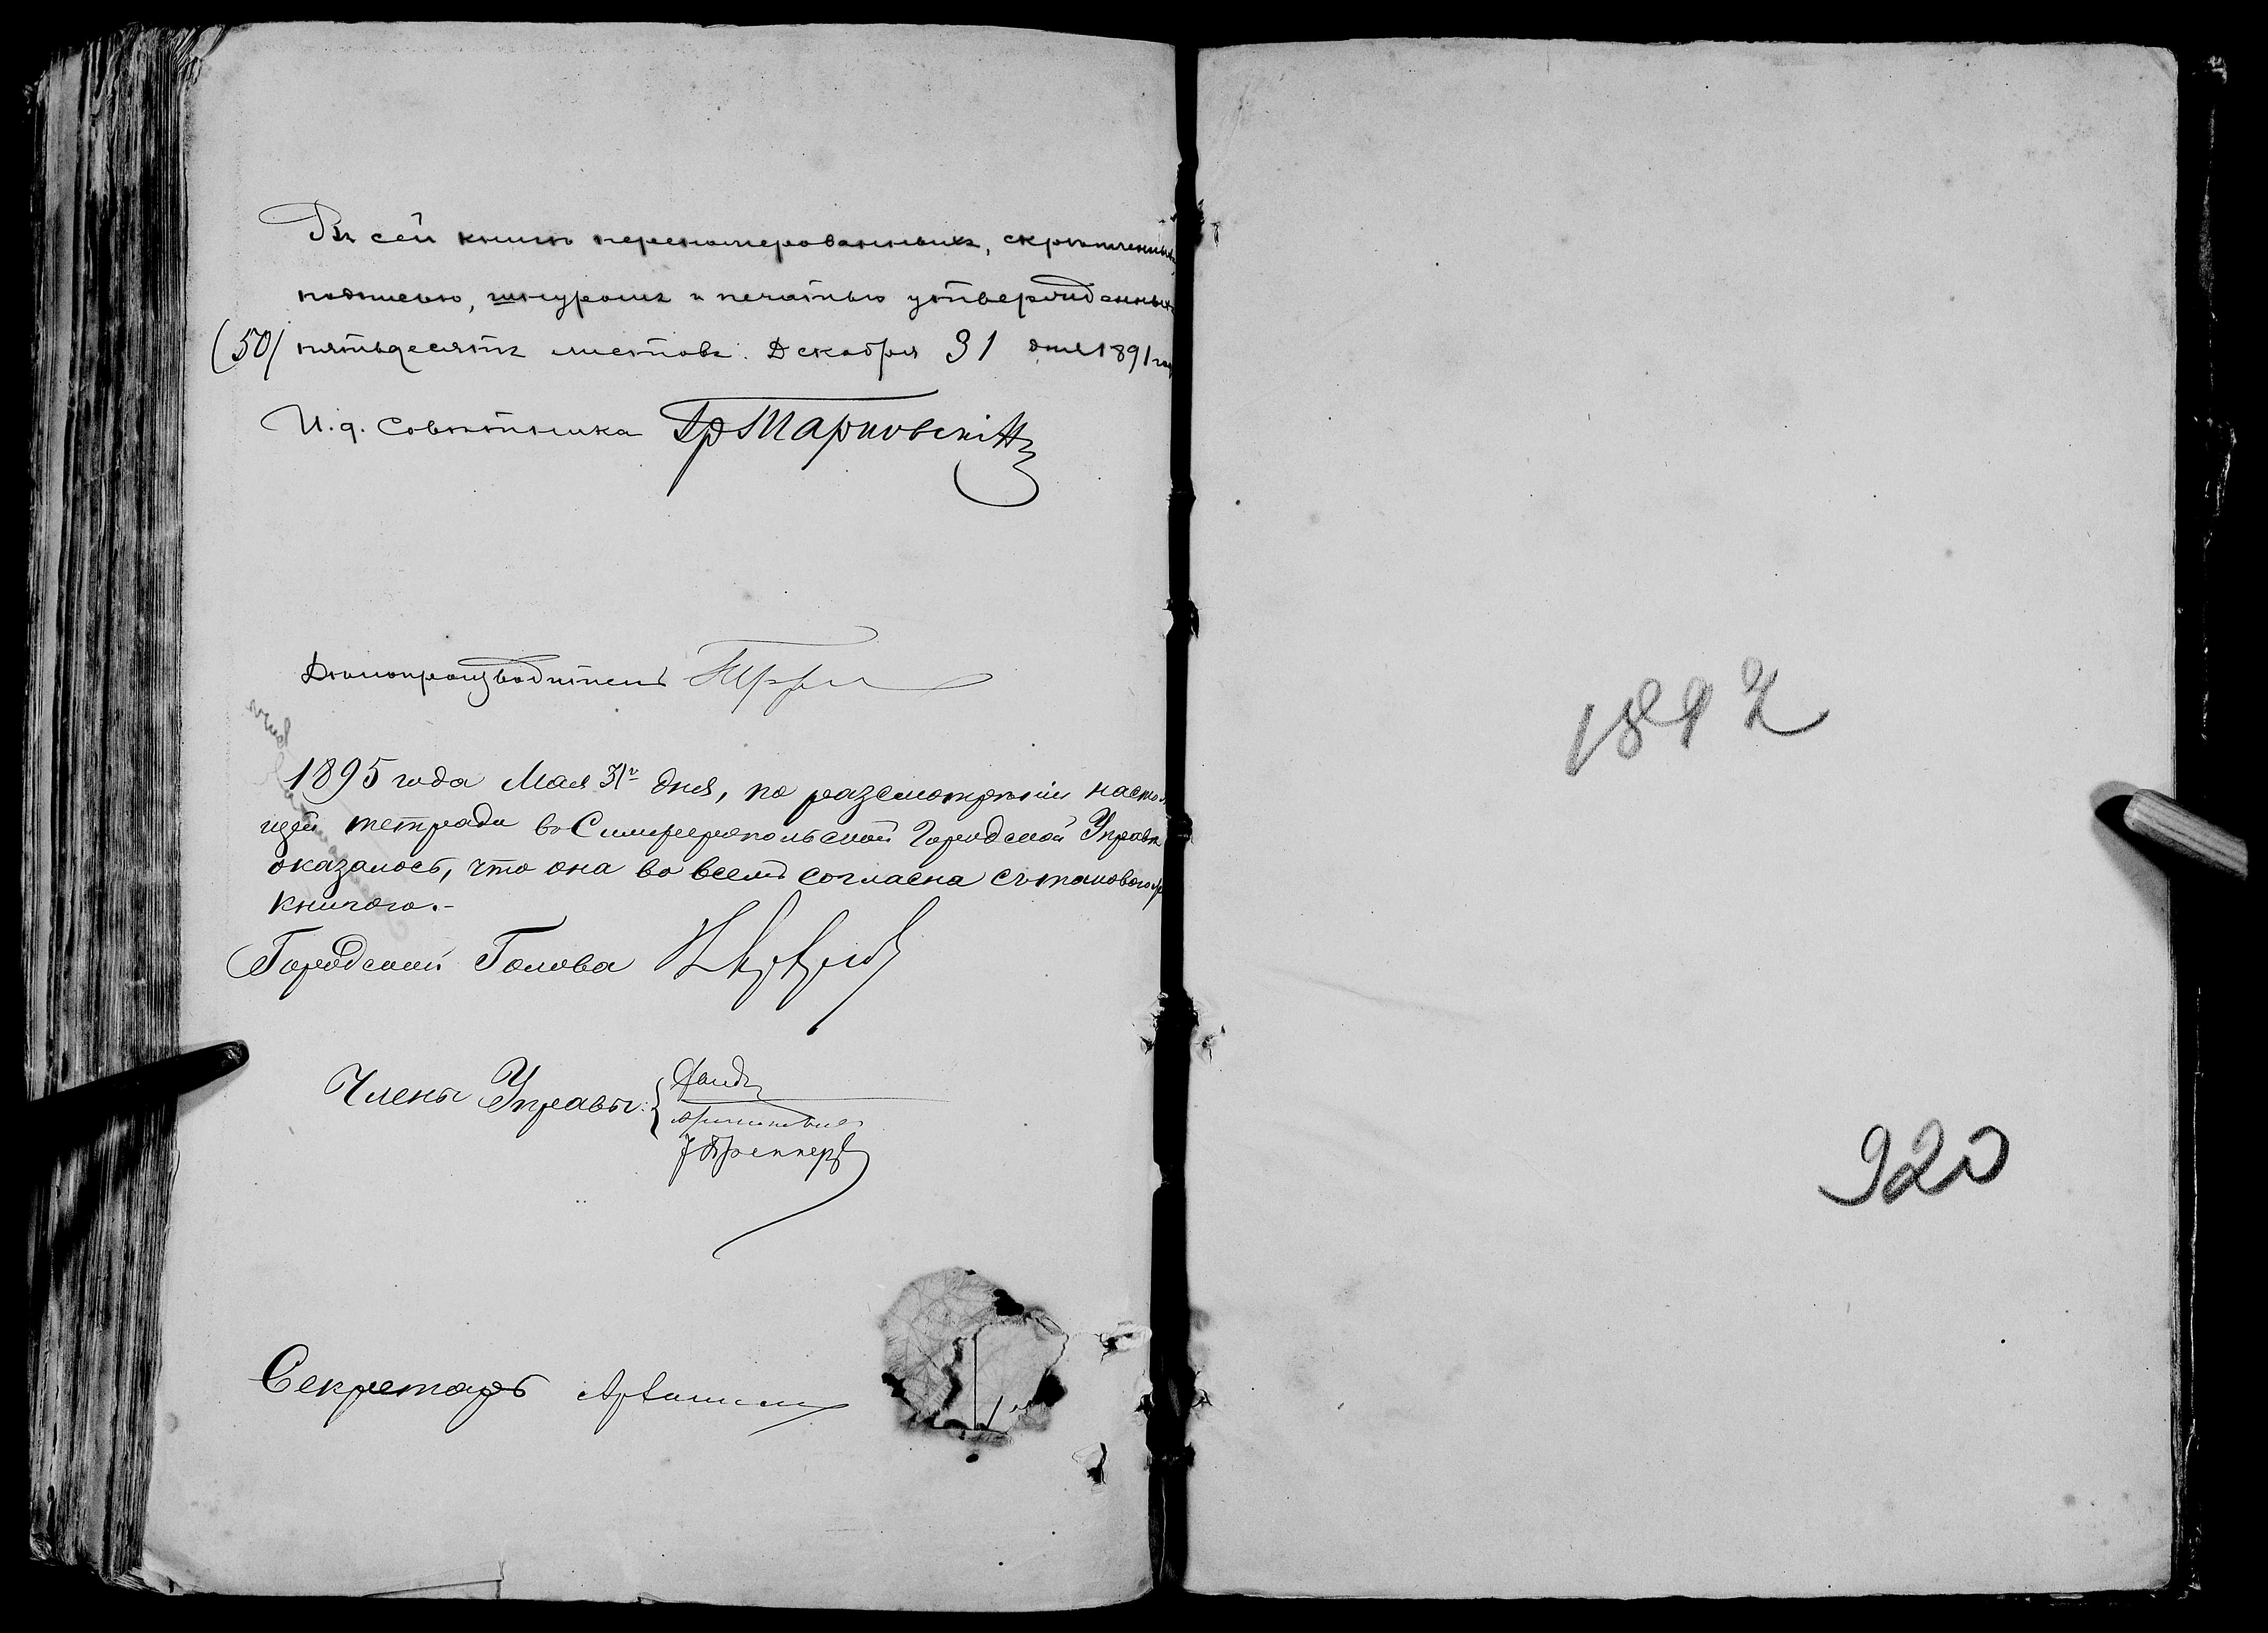 Въ сей книгѣ перенумерованныхъ, скрѣпленныхъ
подписью, шнуромъ и печатью утвержденныхъ
(50) пятьдесятъ листовъ. Декабря 31 дня 1891 года
И. д. Совѣтника Гр Тарновскій
Дѣлопроизводитель
1895 года Мая 31го дня, по разсмотрѣніи настоя
щей тетради въ Симферопольской Городской Управѣ
оказалось, что она во всемъ согласна съ таковою
книгою.-
Городской Голова
Члены Управы:
Секретарь
1892
920